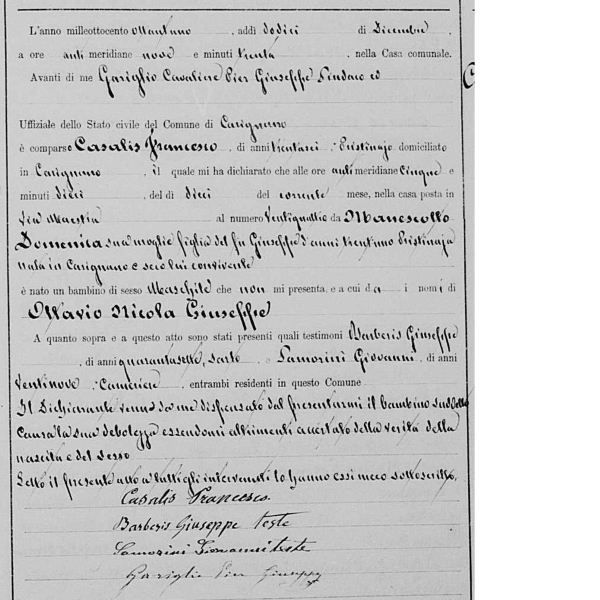 L'anno milleottocento ottantuno, addì dodici di Dicembre,
a ore anti meridiane nove e minuti trenta, nella Casa comunale.
Avanti di me Gariglio Cavaliere Pier Giuseppe Sindaco ed
Uffiziale dello Stato civile del Comune di Carignano
è comparso Casalis Francesco, di anni trentasei, Pristinajo domiciliato
in Carignano, il quale mi ha dichiarato che alle ore anti meridiane cinque e
minuti dieci, del dì dieci del corrente mese, nella casa posta in
via Maestra al numero ventiquattro da Manescotto
Domenica sua moglie figlia del fu Giuseppe d'anni trentuno Pristinaja
nata in Carignano e seco lui convivente
è nato un bambino di sesso Maschile che non mi presenta, e a cui da i nomi di
Ottavio Nicola Giuseppe
A quanto sopra e a questo atto sono stati presenti quali testimoni Barberis Giuseppe
, di anni quarantasette, sarto e Samorini Giovanni, di anni
ventinove Cameriere, entrambi residenti in questo Comune
Il Dichiarante venne da me dispensato dal presentarmi il bambino suddetto
causa la sua debolezza essendomi altrimenti accertato della verità della
nascita e del sesso
Letto il presente atto a tutti gli intervenuti lo hanno essi meco sottoscritto.
Casalis Francesco.
Barberis Giuseppe teste
Samorini Giovanni teste
Gariglio Pier Giuseppe